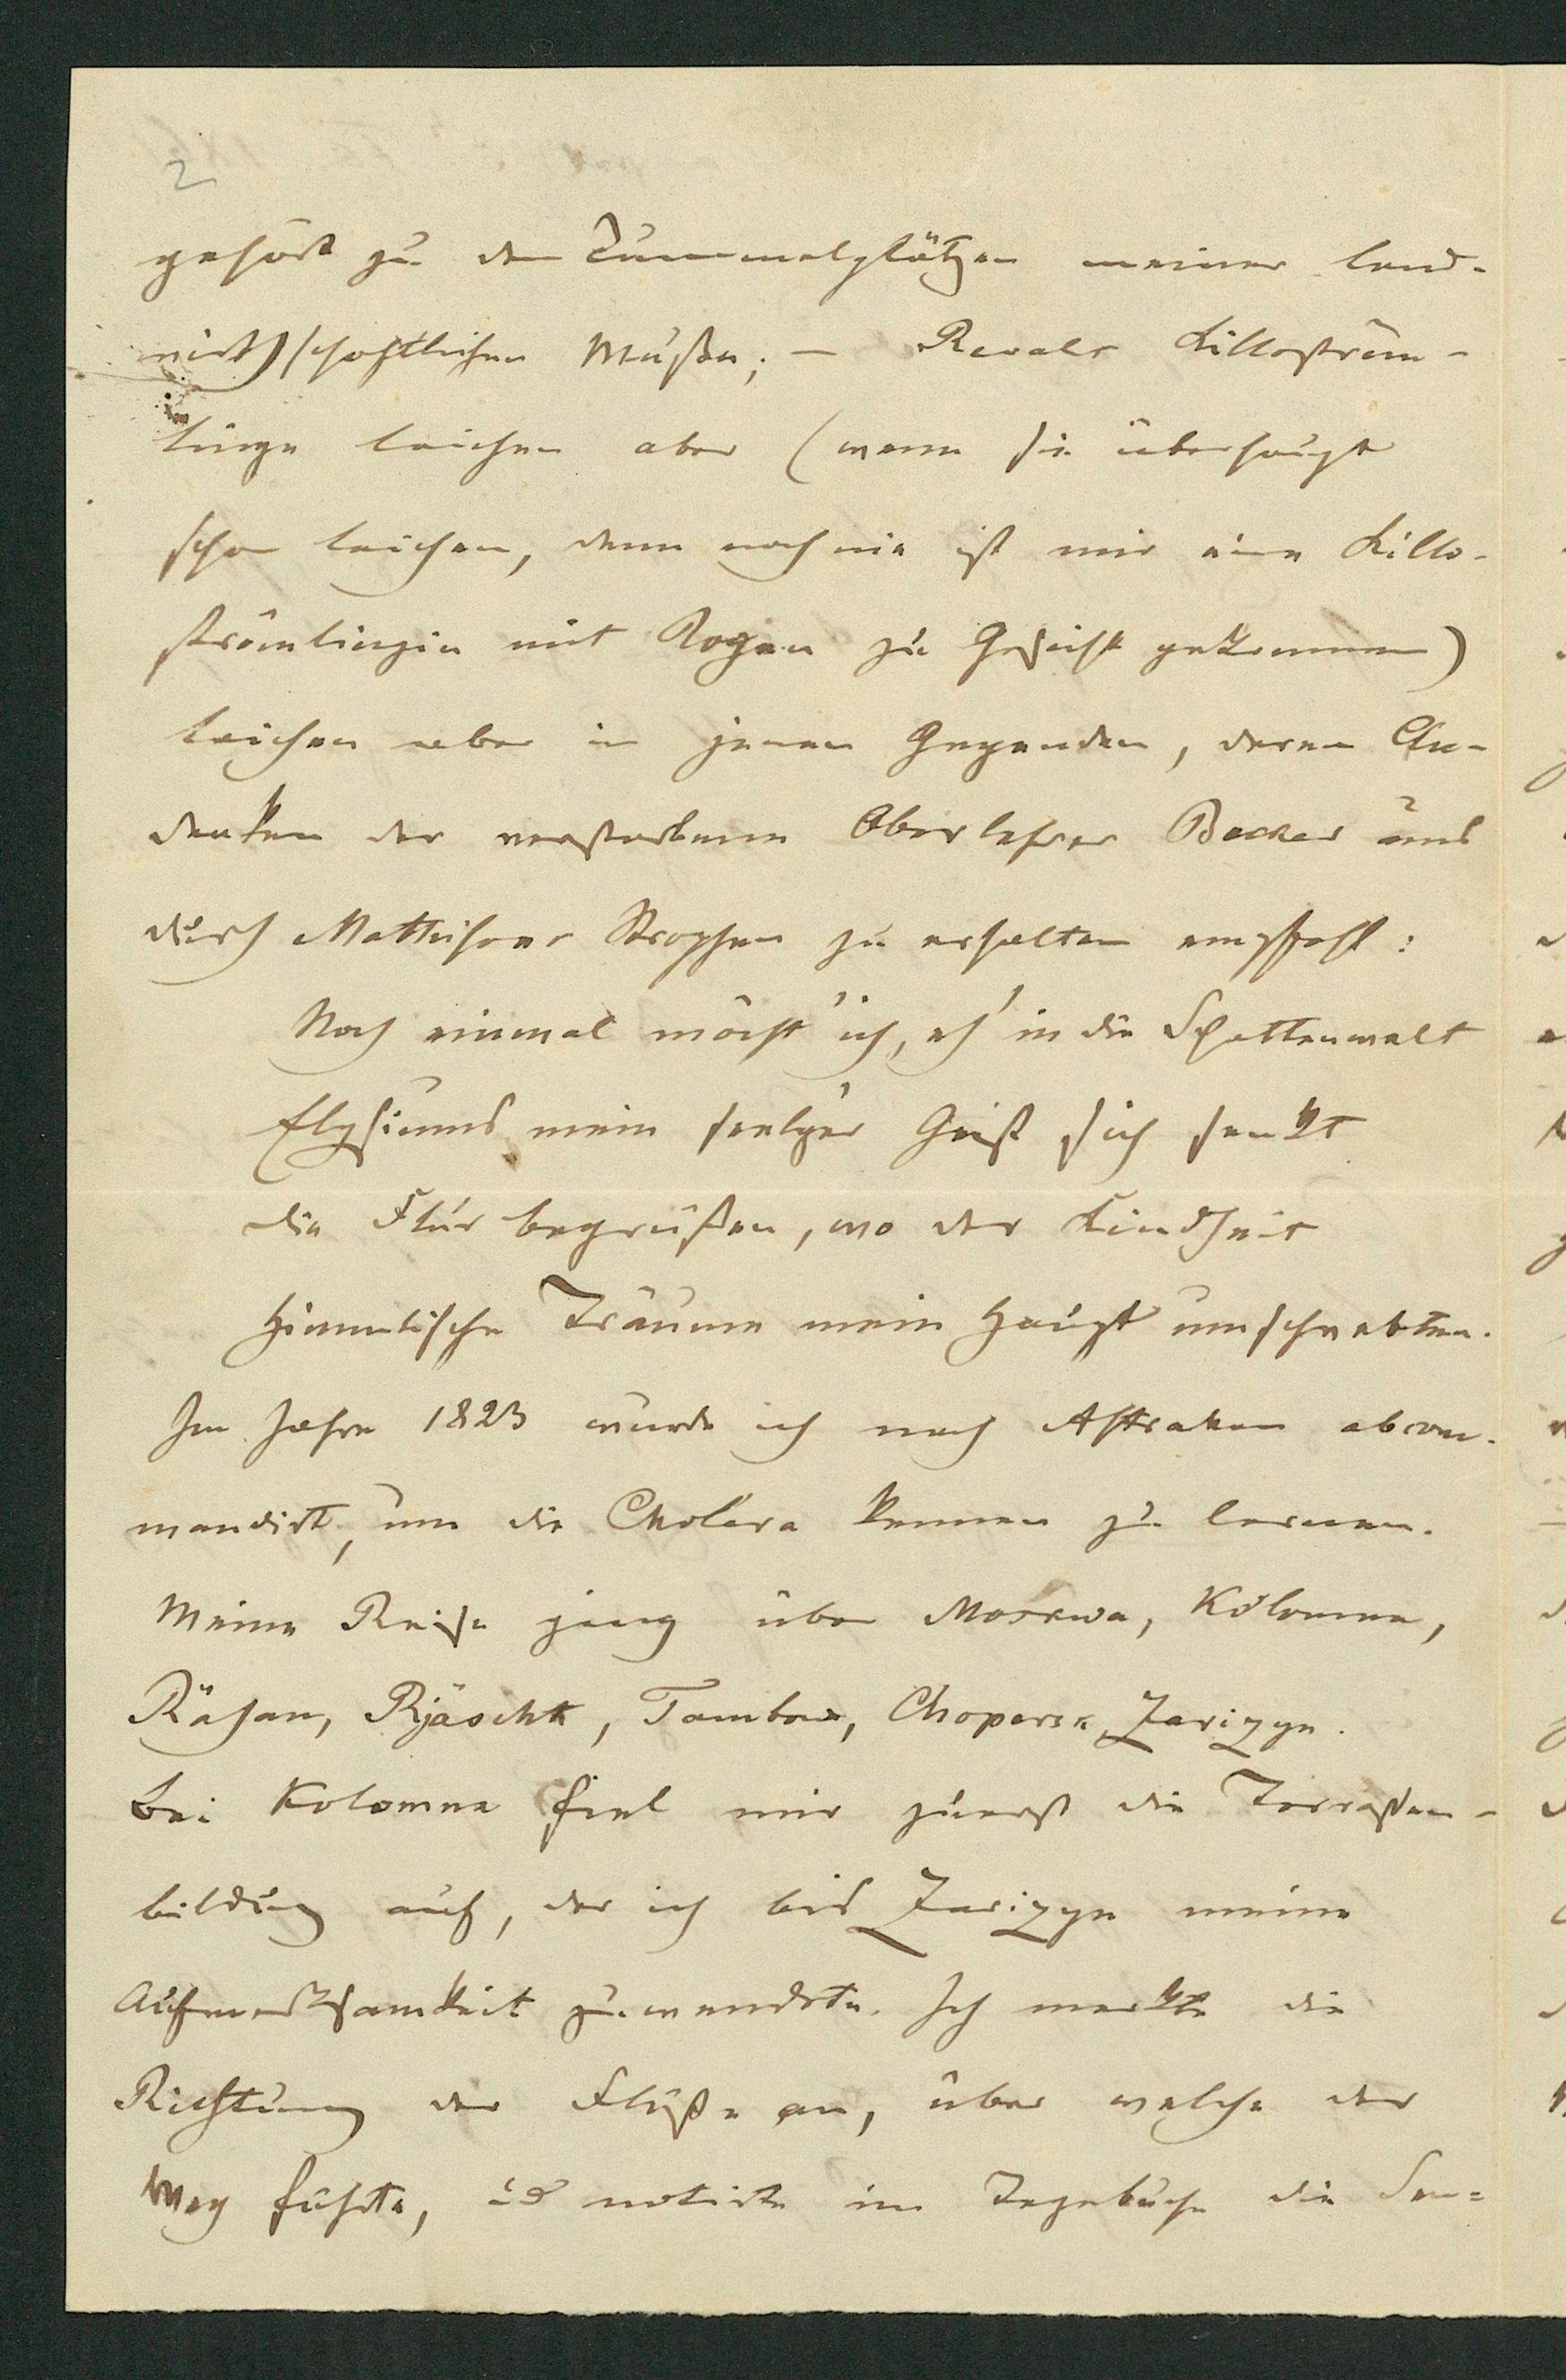 2
gehört zu den Tummelplätzen meiner land-
wirthschaftlichen Mußen; — Revals Killoström-
linge laichen aber (wenn sie überhaupt
schon laichen, denn noch nie ist mir eine Killo-
strömlingin mit Rogen zu Gesicht gekommen)
laichen aber in jenen Gegenden, deren An-
denken der verstorbene Oberlehrer Becker uns
durch Matthisons Strophen zu erhalten empfahl:
Noch einmal möcht' ich, eh' in die Schattenwelt
Elysiums mein seel'ger Geist sich senkt
die Flur begrüßen, wo der Kindheit
himmlische Träume mein Haupt umschwebten.
Im Jahre 1823 wurde ich nach Astrakan abcom-
mandirt, um die Cholera kennen zu lernen.
Meine Reise ging über Moskwa, Kolomna,
Räsan, Rjäschk, Tambow, Chopersk, Zarizyn.
Bei Kolomna fiel mir zuerst die Terraßen-
bildung auf, der ich bis Zarizyn meine
Aufmerksamkeit zuwendete. Ich merkte die
Richtung der Flüße an, über welche der
Weg führte, notirte im Tagebuche die Sen-